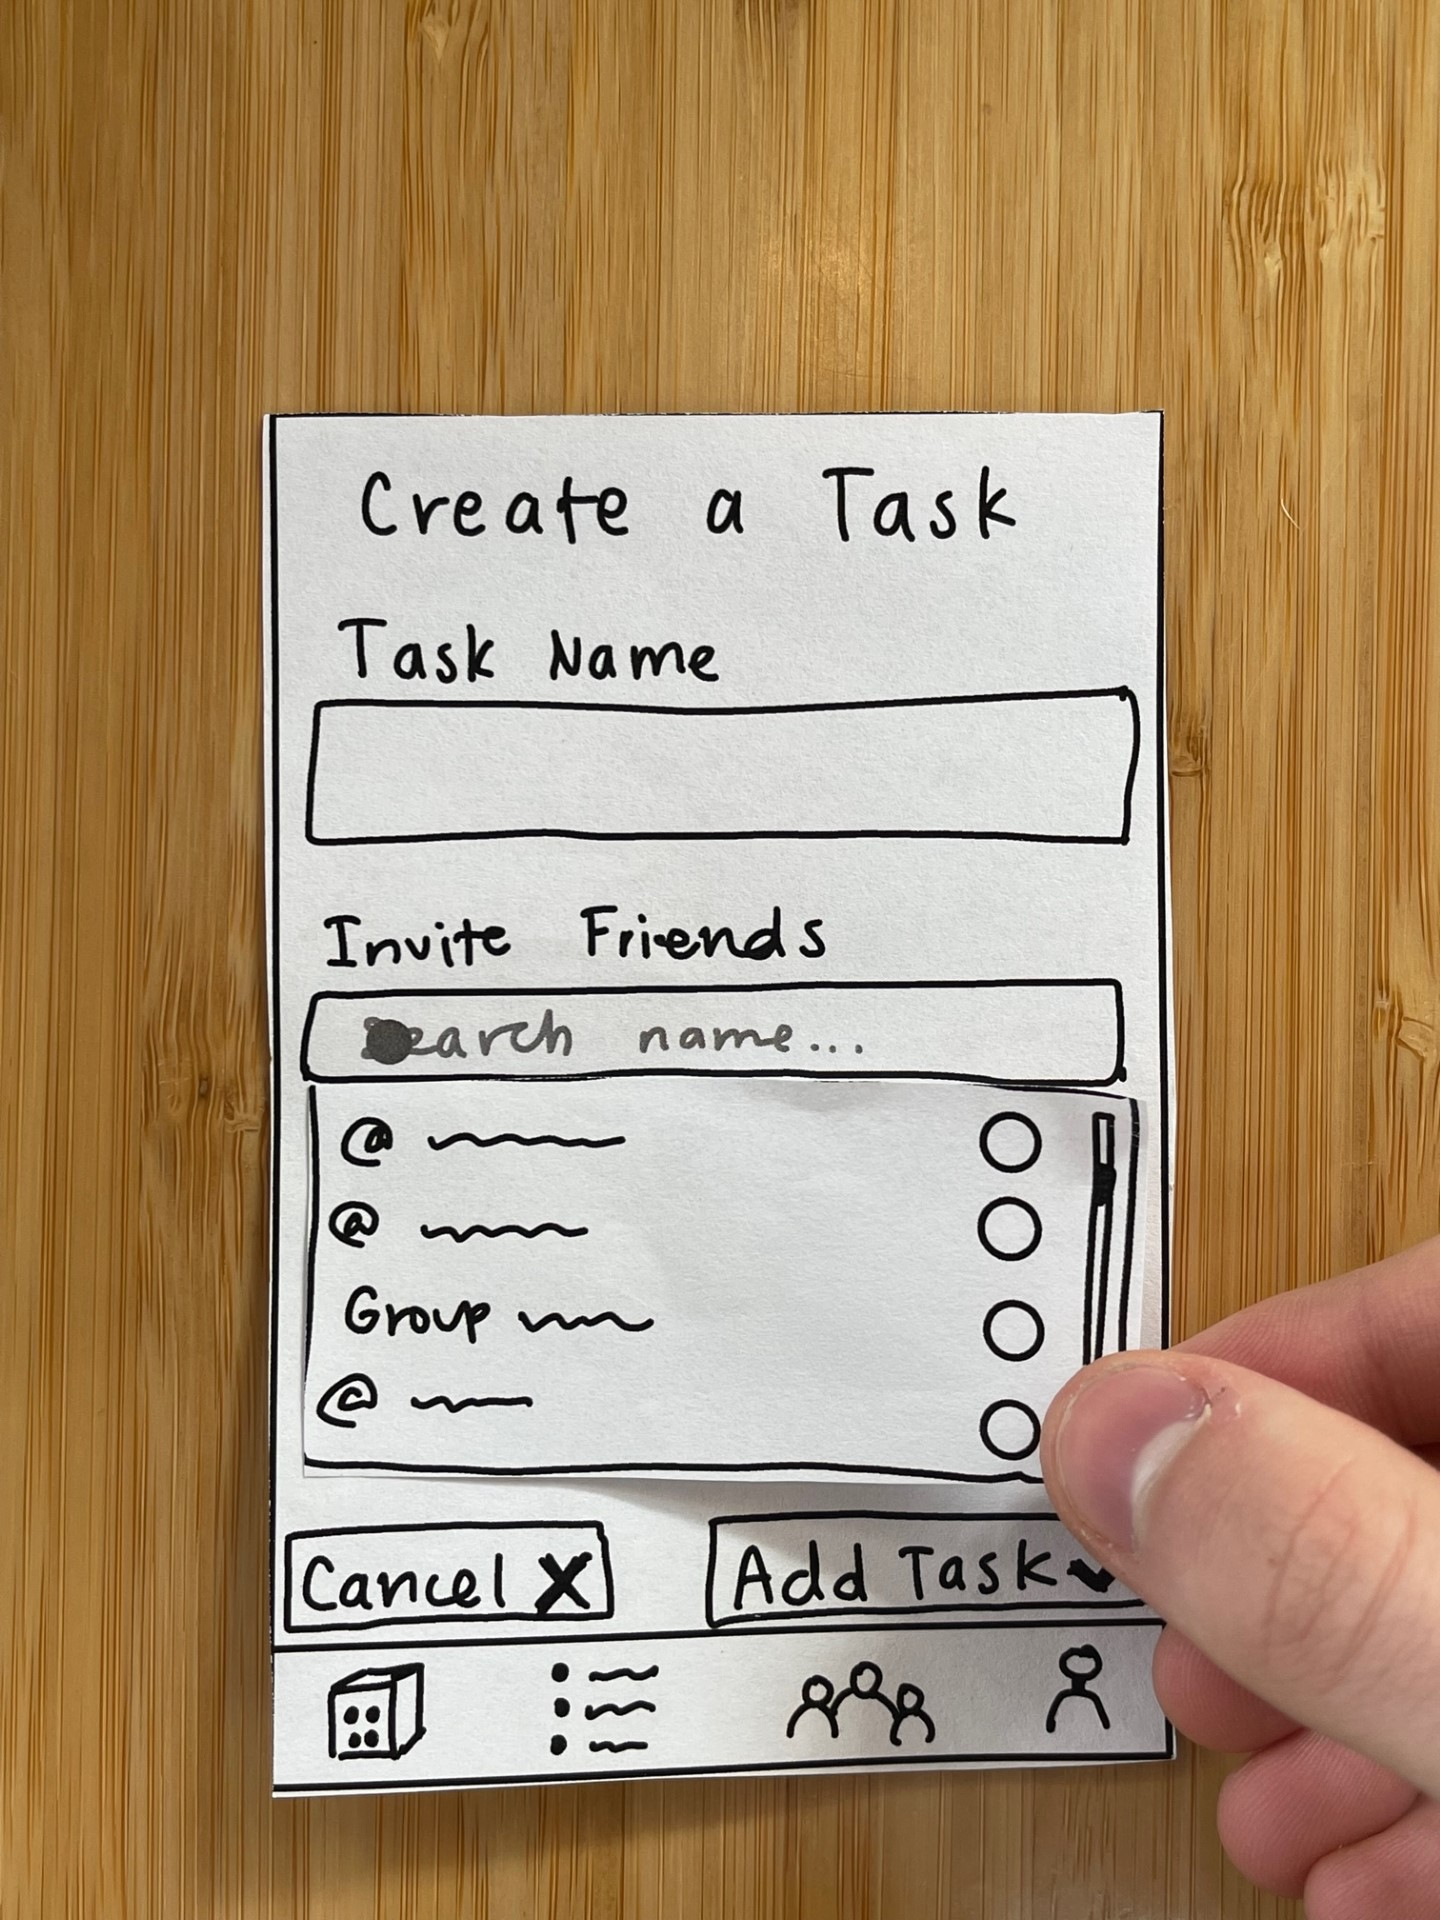 Create a Task
Task Name
Invite Friends
Search name...
@
@
Group
@
Cancel X
Add Task